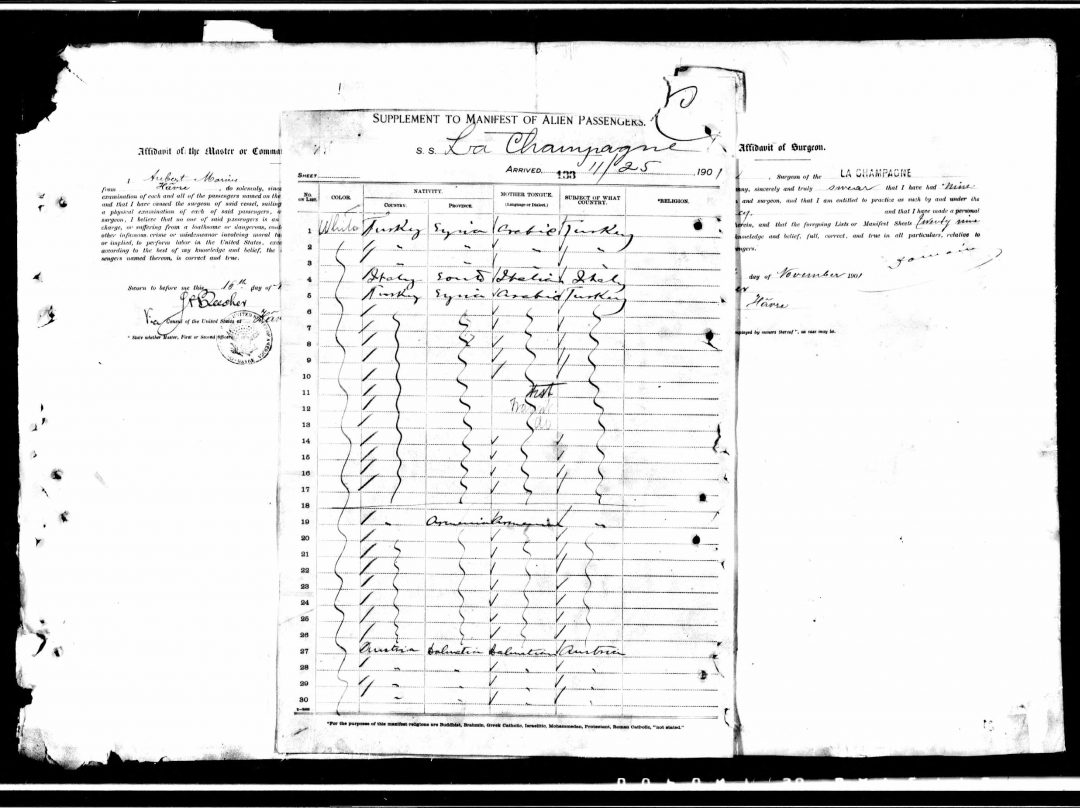 SUPPLEMENT TO MANIFEST OF ALIEN PASSENGERS.
S. S. La Champagne
ARRIVED, 133 11/25 1901
SHEET
No. ON LIST.
COLOR.
NATIVITY.
COUNTRY.
PROVINCE.
MOTHER TONGUE.
(Language or Dialect.)
SUBJECT OF WHAT COUNTRY.
*RELIGION.
1 White Turkey Syria Arabic Turkey
2 " " " "
3 " " " "
4 Italy South Italian Italy
5 Turkey Syria Arabic Turkey
6
7
8
9
10
11
12
13
14
15
16
17
18
19 " Armenia Armenian "
20
21
22
23
24
25
26
27 Austria Dalmatia Dalmatian Austria
28 " " " "
29 " " " "
30 " " " "
*For the purposes of this manifest religions are Buddhist, Brahmin, Greek Catholic, Israelitic, Mohammedan, Protestant, Roman Catholic, "not stated."
Affidavit of the Master or Comma
I, Marius
from Hâvre, do solemnly, since
examination of each and all of the passengers named on the
and that I have caused the surgeon of said vessel, sailing
a physical examination of each of said passengers, a
surgeon, I believe that no one of said passengers is an
charge, or suffering from a loathsome or dangerous, con
other infamous crime or misdemeanor involving moral tu
or implied, to perform labor in the United States, exce
according to the best of my knowledge and belief, the
sengers named therein, is correct and true.
Sworn to before me this 16th day of
Consul of the United States at
* State whether Master, First or Second Officer.
Affidavit of Surgeon.
Surgeon of the LA CHAMPAGNE
sincerely and truly swear that I have had nine
and surgeon, and that I am entitled to practice as such by and under the
and that I have made a personal
herein, and that the foregoing Lists or Manifest Sheets twenty nine
knowledge and belief, full, correct, and true in all particulars, relative to
ngers.
day of November 1901
Hâvre
mployed by owners thereof", as case may be.